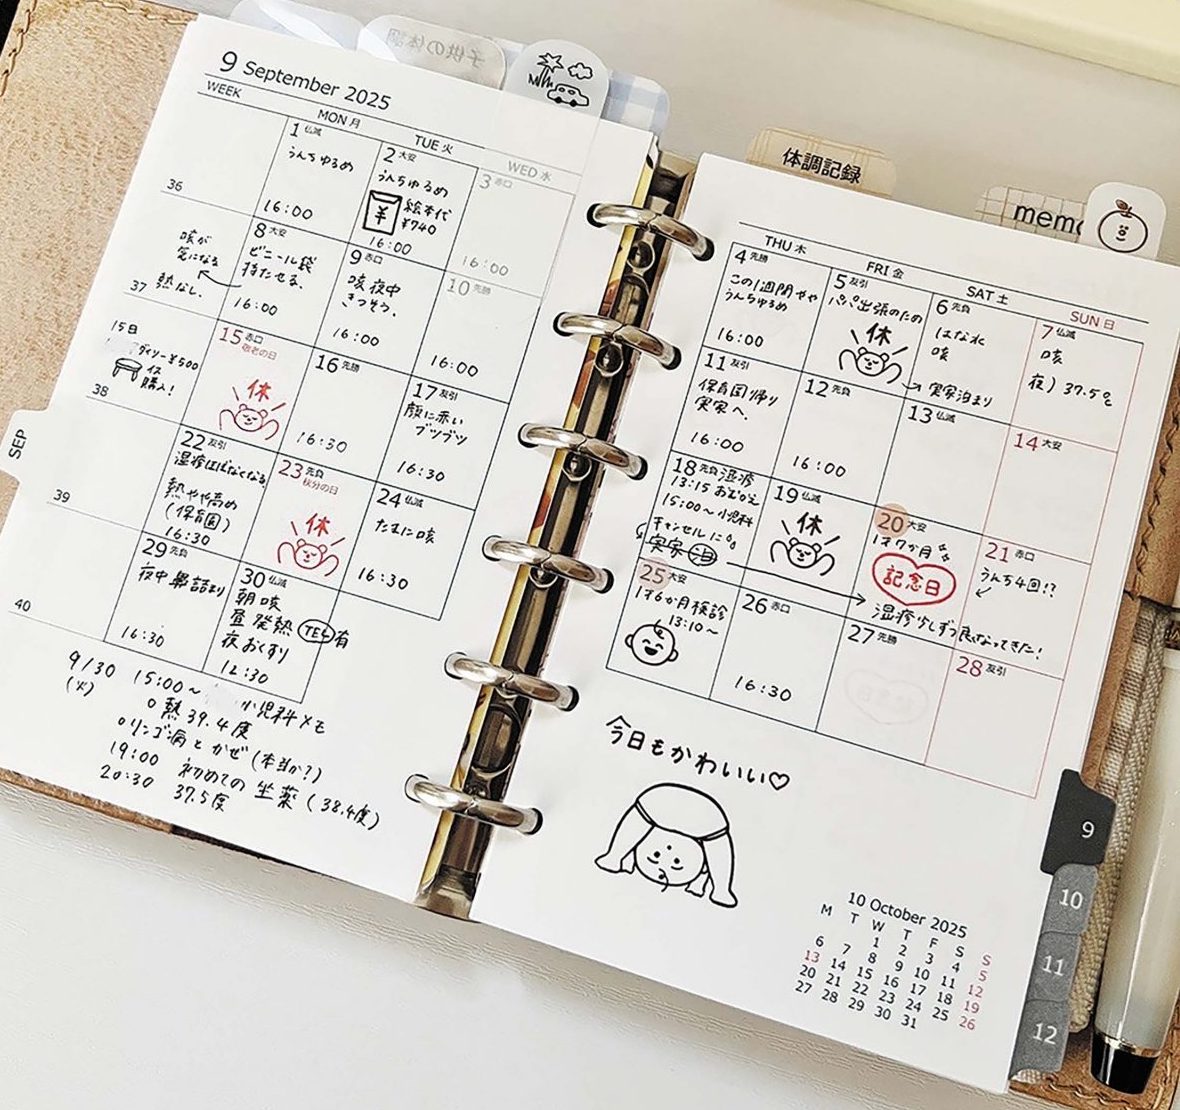 子供の体調
9 September 2025
WEEK
MON 月
TUE 火
WED 水
36
1 仏滅
うんちゆるめ
16:00
2 大安
うんちゆるめ
¥
絵本代
¥740
16:00
3 赤口
16:00
咳が
気になる
熱なし.
37
8 大安
ビニール袋
持たせる.
16:00
9 赤口
咳夜中
きつそう.
16:00
10 先勝
16:00
15日
ダイソー¥500
イス
購入!
38
15 赤口
敬老の日
休
16 先勝
16:30
17 友引
顔に赤い
ブツブツ
16:30
SEP
39
22 友引
湿疹ほぼなくなる
熱やや高め
(保育園)
16:30
23 先負
秋分の日
休
24 仏滅
たまに咳
16:30
40
29 先負
夜中鼻詰まり
16:30
30 仏滅
朝咳
昼発熱 TEL有
夜おくすり
12:30
9/30 15:00~ 小児科メモ
(火) 熱39.4度
リンゴ病とかぜ(本当か?)
19:00 初めての坐薬(38.4度)
20:30 37.5度
体調記録
memo
THU 木
FRI 金
SAT 土
SUN 日
4 先勝
この1週間やや
うんちゆるめ
16:00
5 友引
パパ出張のため
休
実家泊まり
6 先負
はな水
咳
7 仏滅
咳
夜) 37.5℃
11 友引
保育園帰り
実家へ.
16:00
12 先負
16:00
13 仏滅
14 大安
18 先負 湿疹
13:15 お迎え
15:00~小児科
キャンセルに
実家 泊
19 仏滅
休
20 大安
1才7か月
記念日
湿疹少しずつ良くなってきた!
21 赤口
うんち4回!?
25 大安
1才6か月検診
13:10~
26 赤口
16:30
27 先勝
28 友引
今日もかわいい♡
10 October 2025
M T W T F S S
1 2 3 4 5
6 7 8 9 10 11 12
13 14 15 16 17 18 19
20 21 22 23 24 25 26
27 28 29 30 31
9
10
11
12